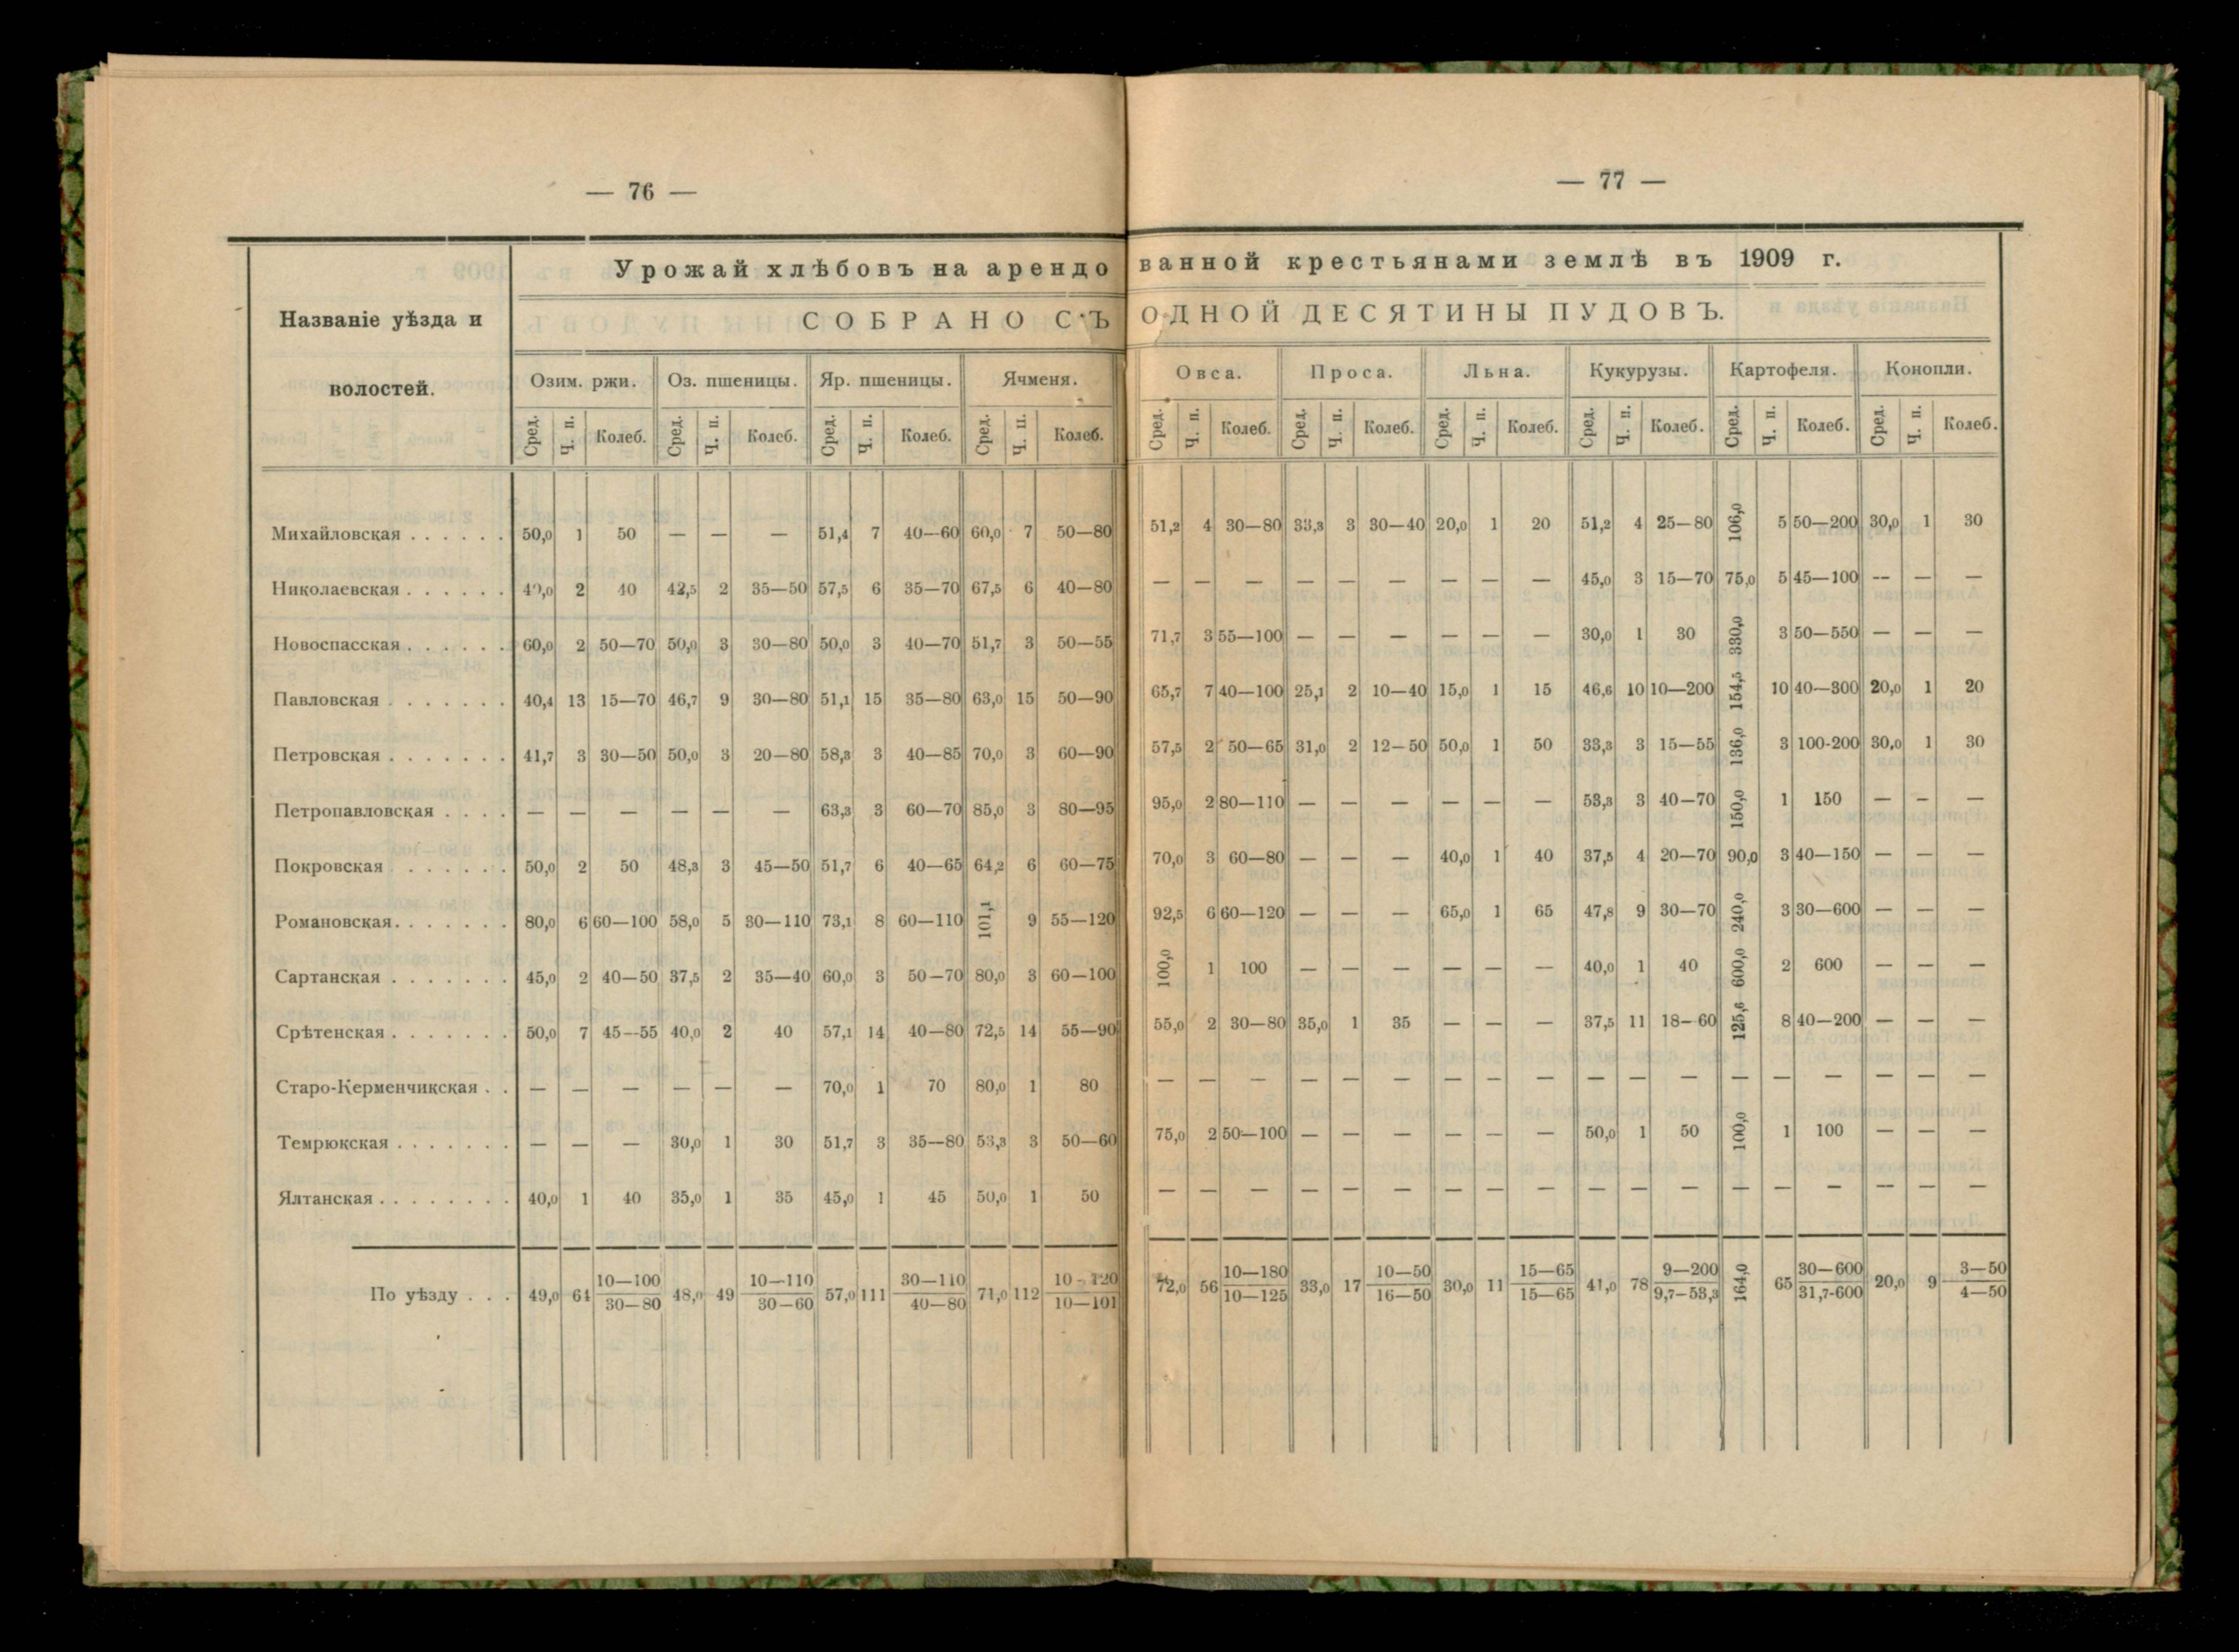 — 76 —
Урожай хлѣбовъ на арендо
СОБРАНО СЪ
Названіе уѣзда и
волостей.
Озим. ржи. Оз. пшеницы. Яр. пшеницы. Ячменя.
Сред. Ч. п. Колеб. Сред. Ч. п. Колеб. Сред. Ч. п. Колеб. Сред. Ч. п. Колеб.
Михайловская . . . . . . 50,0 1 50 — — — 51,4 7 40—60 60,0 7 50—80
Николаевская . . . . . . 40,0 2 40 42,5 2 35—50 57,5 6 35—70 67,5 6 40—80
Новоспасская . . . . . . 60,0 2 50—70 50,0 3 30—80 50,0 3 40—70 51,7 3 50—55
Павловская . . . . . . . 40,4 13 15—70 46,7 9 30—80 51,1 15 35—80 63,0 15 50—90
Петровская . . . . . . . 41,7 3 30—50 50,0 3 20—80 58,3 3 40—85 70,0 3 60—90
Петропавловская . . . . — — — — — — 63,3 3 60—70 85,0 3 80—95
Покровская . . . . . . 50,0 2 50 48,3 3 45—50 51,7 6 40—65 64,2 6 60—75
Романовская . . . . . . . 80,0 6 60—100 58,0 5 30—110 73,1 8 60—110 101,1 9 55—120
Сартанская . . . . . . . 45,0 2 40—50 37,5 2 35—40 60,0 3 50—70 80,0 3 60—100
Срѣтенская . . . . . . . 50,0 7 45—55 40,0 2 40 57,1 14 40—80 72,5 14 55—90
Старо-Керменчикская . . — — — — — — 70,0 1 70 80,0 1 80
Темрюкская . . . . . . . — — — 30,0 1 30 51,7 3 35—80 53,3 3 50—60
Ялтанская . . . . . . . . 40,0 1 40 35,0 1 35 45,0 1 45 50,0 1 50
По уѣзду . . . 49,0 64 10—100 30—80 48,0 49 10—110 30—60 57,0 111 30—110 40—80 71,0 112 10—120 10—101
— 77 —
ванной крестьянами землѣ въ 1909 г.
ОДНОЙ ДЕСЯТИНЫ ПУДОВЪ.
Овса. Проса. Льна. Кукурузы. Картофеля. Конопли.
Сред. Ч. п. Колеб. Сред. Ч. п. Колеб. Сред. Ч. п. Колеб. Сред. Ч. п. Колеб. Сред. Ч. п. Колеб. Сред. Ч. п. Колеб.
51,2 4 30—80 33,3 3 30—40 20,0 1 20 51,2 4 25—80 106,0 5 50—200 30,0 1 30
— — — — — — — — — 45,0 3 15—70 75,0 5 45—100 — — —
71,7 3 55—100 — — — — — — 30,0 1 30 330,0 3 50—550 — — —
65,7 7 40—100 25,1 2 10—40 15,0 1 15 46,6 10 10—200 154,5 10 40—300 20,0 1 20
57,5 2 50—65 31,0 2 12—50 50,0 1 50 33,3 3 15—55 136,0 3 100-200 30,0 1 30
95,0 2 80—110 — — — — — — 53,3 3 40—70 150,0 1 150 — — —
70,0 3 60—80 — — — 40,0 1 40 37,5 4 20—70 90,0 3 40—150 — — —
92,5 6 60—120 — — — 65,0 1 65 47,8 9 30—70 240,0 3 30—600 — — —
100,0 1 100 — — — — — — 40,0 1 40 600,0 2 600 — — —
55,0 2 30—80 35,0 1 35 — — — 37,5 11 18—60 125,6 8 40—200 — — —
— — — — — — — — — — — — — — — — — —
75,0 2 50—100 — — — — — — 50,0 1 50 100,0 1 100 — — —
— — — — — — — — — — — — — — — — — —
72,0 56 10—180 10—125 33,0 17 10—50 16—50 30,0 11 15—65 15—65 41,0 78 9—200 9,7—53,3 164,0 65 30—600 31,7-600 20,0 9 3—50 4—50